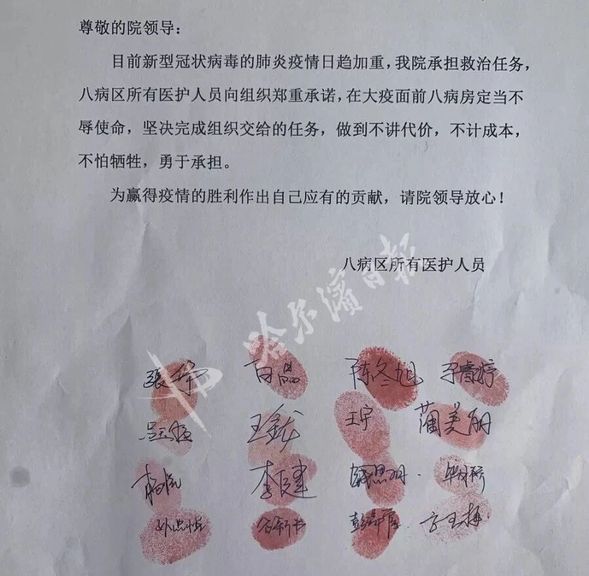 尊敬的院领导：
目前新型冠状病毒的肺炎疫情日趋加重，我院承担救治任务，
八病区所有医护人员向组织郑重承诺，在大疫面前八病房定当不
辱使命，坚决完成组织交给的任务，做到不讲代价，不计成本，
不怕牺牲，勇于承担。
为赢得疫情的胜利作出自己应有的贡献，请院领导放心！
八病区所有医护人员
哈尔滨日报
白晶 陈冬旭
王宇 蒲美丽
李健